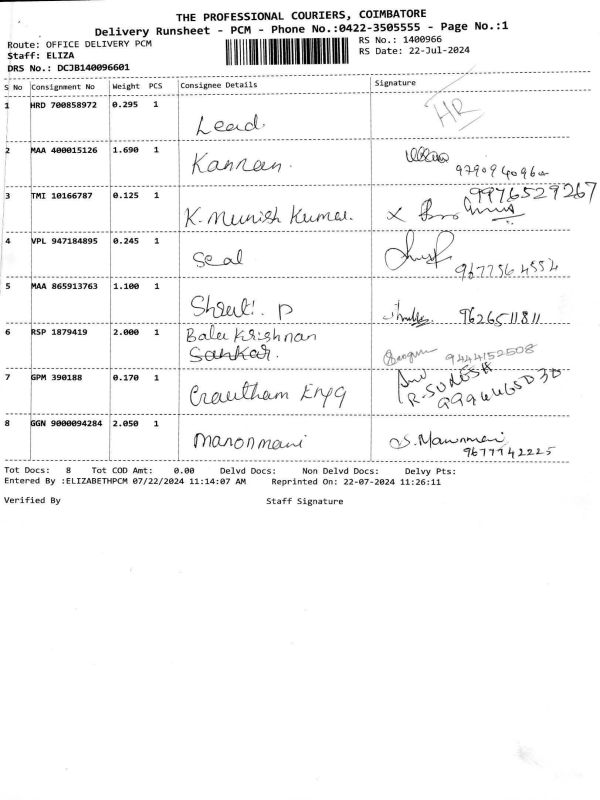 THE PROFESSIONAL COURIERS, COIMBATORE
Delivery Runsheet - PCM - Phone No.:0422-3505555 - Page No.:1
Route: OFFICE DELIVERY PCM RS No.: 1400966
Staff: ELIZA RS Date: 22-Jul-2024
DRS No.: DCJB140096601
S No Consignment No Weight PCS Consignee Details Signature
1 HRD 700858972 0.295 1 Lead HR
2 MAA 400015126 1.690 1 Kannan.
3 TMI 10166787 0.125 1 K. Munish Kumar. 9976529267
4 VPL 947184895 0.245 1 Seal 9677564552
5 MAA 865913763 1.100 1 Shruti. P 9626511811
6 RSP 1879419 2.000 1 Bala Krishnan 9444152508
Sankar.
7 GPM 390188 0.170 1 Engg R-SURESH
8 GGN 9000094284 2.050 1 Manonmani S. Manonmani
9677142225
Tot Docs: 8 Tot COD Amt: 0.00 Delvd Docs: Non Delvd Docs: Delvy Pts:
Entered By :ELIZABETHPCM 07/22/2024 11:14:07 AM Reprinted On: 22-07-2024 11:26:11
Verified By Staff Signature